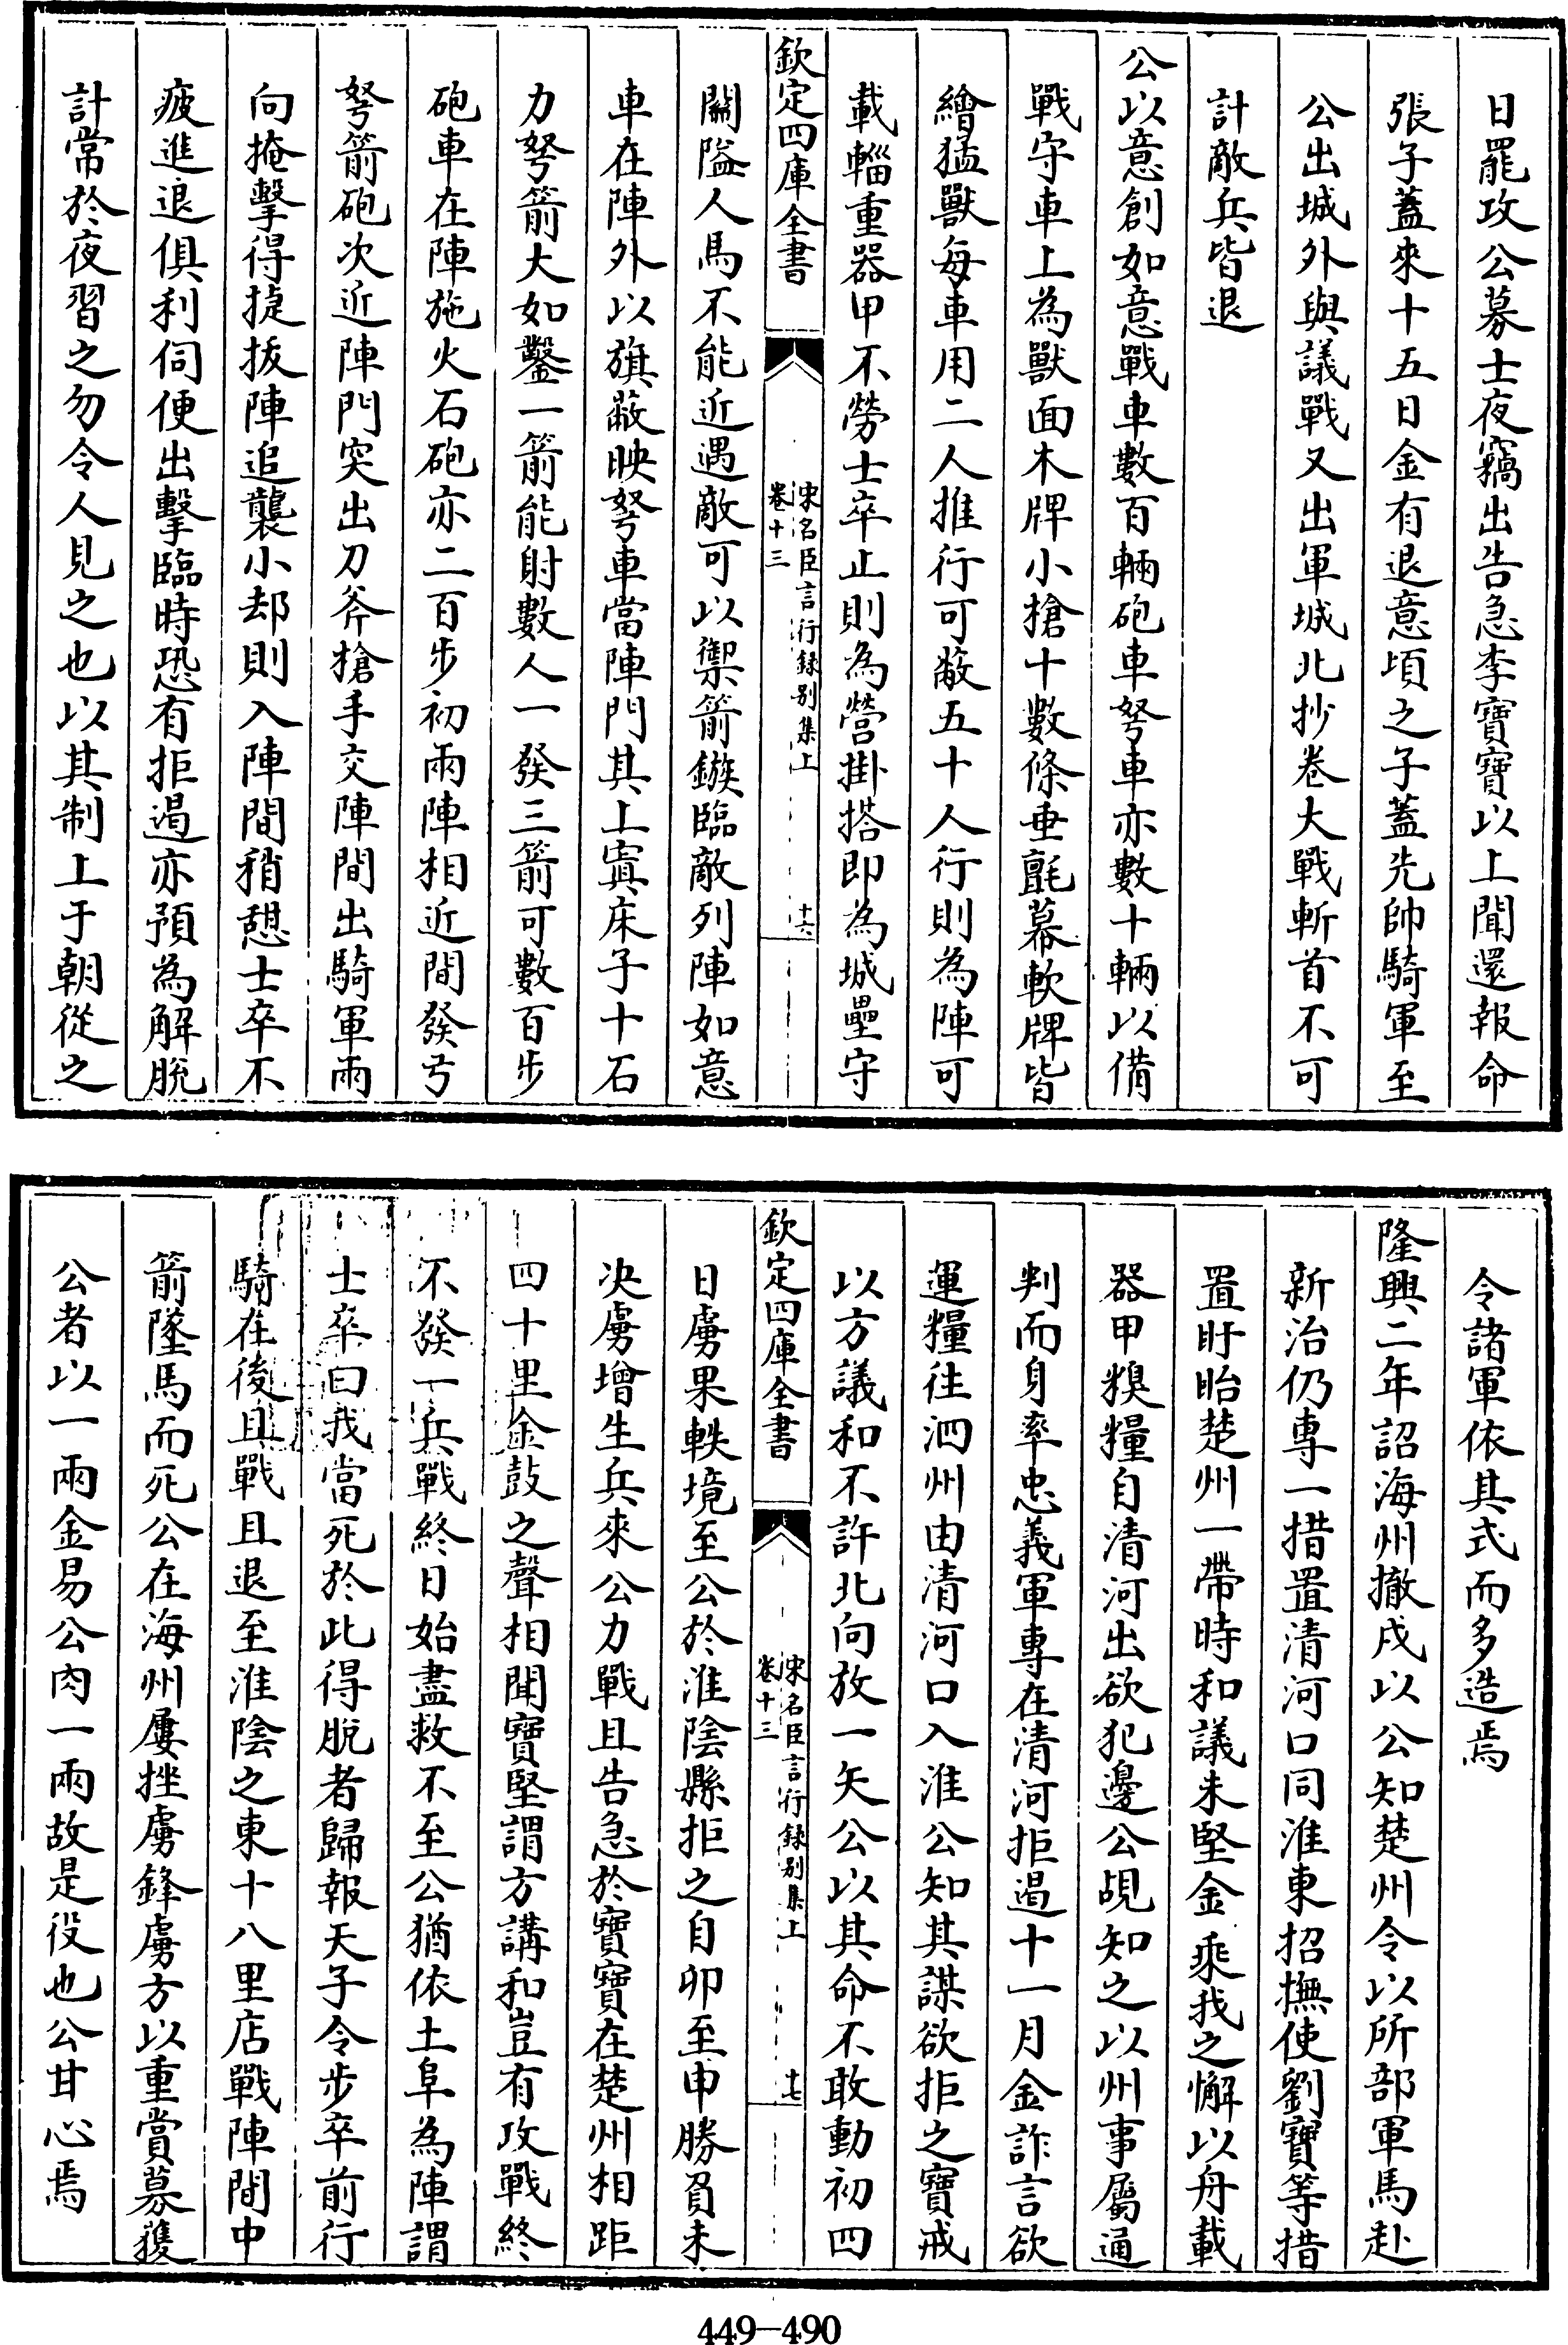 日罷攻公募士夜竊出告急李寶寶以上聞還報命
張子蓋來十五日金有退意頃之子蓋先帥騎軍至
公出城外與議戰又出軍城北抄卷大戰斬首不可
計敵兵皆退
公以意創如意戰車數百輛砲車弩車亦數十輛以備
戰守車上為獸面木牌小搶十數條垂氈幕軟牌皆
繪猛獸每車用二人推行可蔽五十人行則為陣可
載輜重器甲不勞士卒止則為營掛搭即為城壘守
欽定四庫全書
宋名臣言行録别集上
卷十三
十六
關隘人馬不能近遇敵可以禦箭鏃臨敵列陣如意
車在陣外以旗蔽映弩車當陣門其上寘床子十石
力弩箭大如鑿一箭能射數人一發三箭可數百步
砲車在陣施火石砲亦二百步初兩陣相近間發弓
弩箭砲次近陣門突出刀斧搶手交陣間出騎軍兩
向掩擊得捷拔陣追襲小却則入陣間稍憩士卒不
疲進退俱利伺便出擊臨時恐有拒遏亦預為解脱
計常於夜習之勿令人見之也以其制上于朝從之
令諸軍依其式而多造焉
隆興二年詔海州撤戍以公知楚州令以所部軍馬赴
新治仍專一措置清河口同淮東招撫使劉寶等措
置盱眙楚州一帶時和議未堅金乘我之懈以舟載
器甲糗糧自清河出欲犯邊公覘知之以州事屬通
判而身率忠義軍專在清河拒遏十一月金詐言欲
運糧往泗州由清河口入淮公知其謀欲拒之寶戒
以方議和不許北向放一矢公以其命不敢動初四
欽定四庫全書
宋名臣言行録别集上
卷十三
十七
日虜果軼境至公於淮陰縣拒之自卯至申勝負未
决虜增生兵來公力戰且告急於寶寶在楚州相距
四十里金鼓之聲相聞寶堅謂方講和豈有攻戰終
不發一兵戰終日始盡救不至公猶依土阜為陣謂
士卒曰我當死於此得脱者歸報天子令步卒前行
騎在後且戰且退至淮陰之東十八里店戰陣間中
箭墜馬而死公在海州屢挫虜鋒虜方以重賞募獲
公者以一兩金易公肉一兩故是役也公甘心焉
449-490